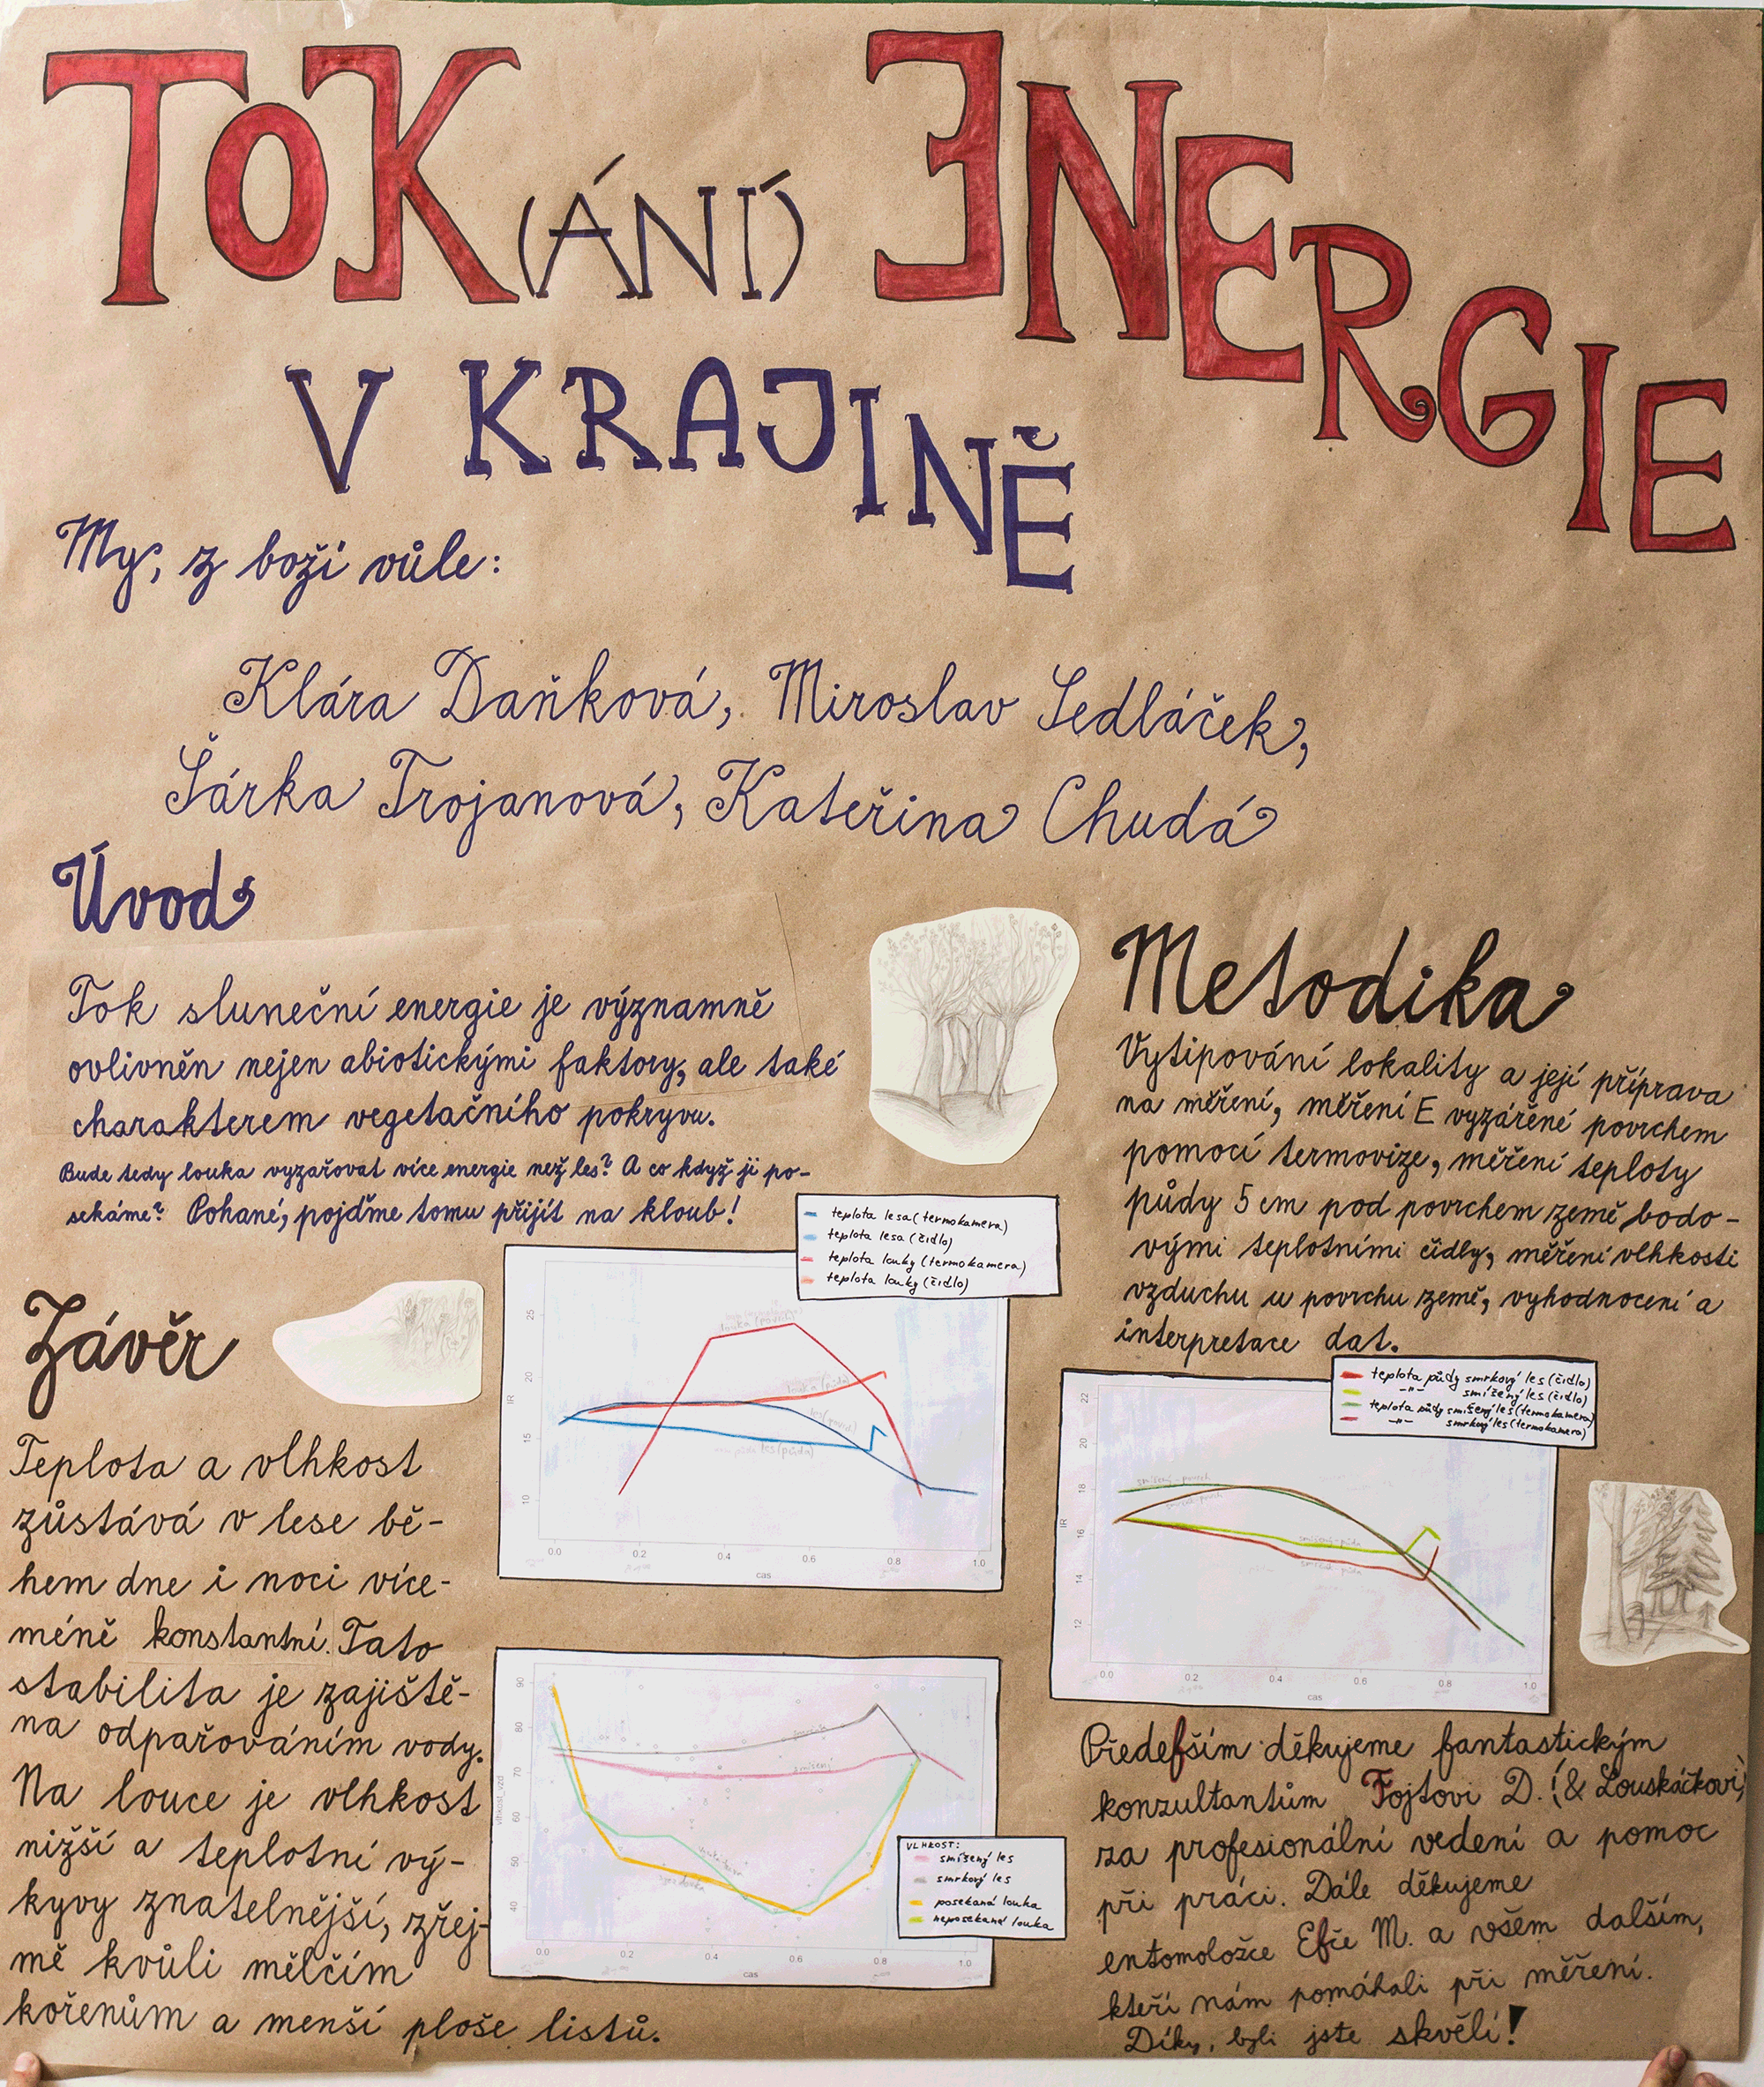 TOK(ÁNÍ) ENERGIE
V KRAJINĚ
My, z boží vůle:
Klára Daňková, Miroslav Sedláček,
Šárka Trojanová, Kateřina Chudá
Úvod
Tok sluneční energie je významně
ovlivněn nejen abiotickými faktory, ale také
charakterem vegetačního pokryvu.
Bude tedy louka vyzařovat více energie než les? A co když ji po-
sekáme? Pohané, pojďme tomu přijít na kloub!
Metodika
Vytipování lokality a její příprava
na měření, měření E vyzářené povrchem
pomocí termovize, měření teploty
půdy 5 cm pod povrchem země bodo-
vými teplotními čidly, měření vlhkosti
vzduchu u povrchu země, vyhodnocení a
interpretace dat.
teplota lesa (termokamera)
teplota lesa (čidlo)
teplota louky (termokamera)
teplota louky (čidlo)
louka (povrch)
louka (půda)
les (povrch)
les (půda)
IR
10
15
20
25
0.0
0.2
0.4
0.6
0.8
1.0
cas
teplota půdy smrkový les (čidlo)
-"- smíšený les (čidlo)
teplota půdy smíšený les (termokamera)
-"- smrkový les (termokamera)
smíšený - povrch
smrkový povrch
smíšený - půda
smrkový půda
IR
12
14
16
18
20
22
0.0
0.2
0.4
0.6
0.8
1.0
cas
Závěr
Teplota a vlhkost
zůstává v lese bě-
hem dne i noci více-
méně konstantní. Tato
stabilita je zajiště-
na odpařováním vody.
Na louce je vlhkost
nižší a teplotní vý-
kyvy znatelnější, zřej-
mě kvůli mělčím
kořenům a menší ploše listů.
vlhkost_vzd
40
50
60
70
80
90
smíšený
0.0
0.2
0.4
0.6
0.8
1.0
cas
VLHKOST:
smíšený les
smrkový les
posekaná louka
neposekaná louka
Předefším děkujeme fantastickým
konzultantům Fojtovi D. (& Louskáčkovi)
za profesionální vedení a pomoc
při práci. Dále děkujeme
entomoložce Efče M. a všem dalším,
kteří nám pomáhali při měření.
Díky, byli jste skvělí!